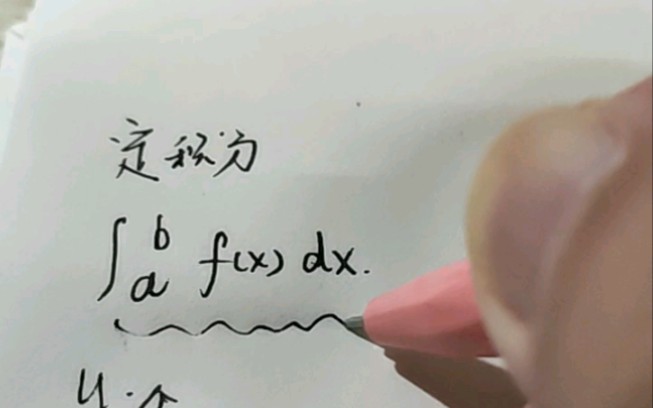 定积分
∫_a^b f(x) dx.
y